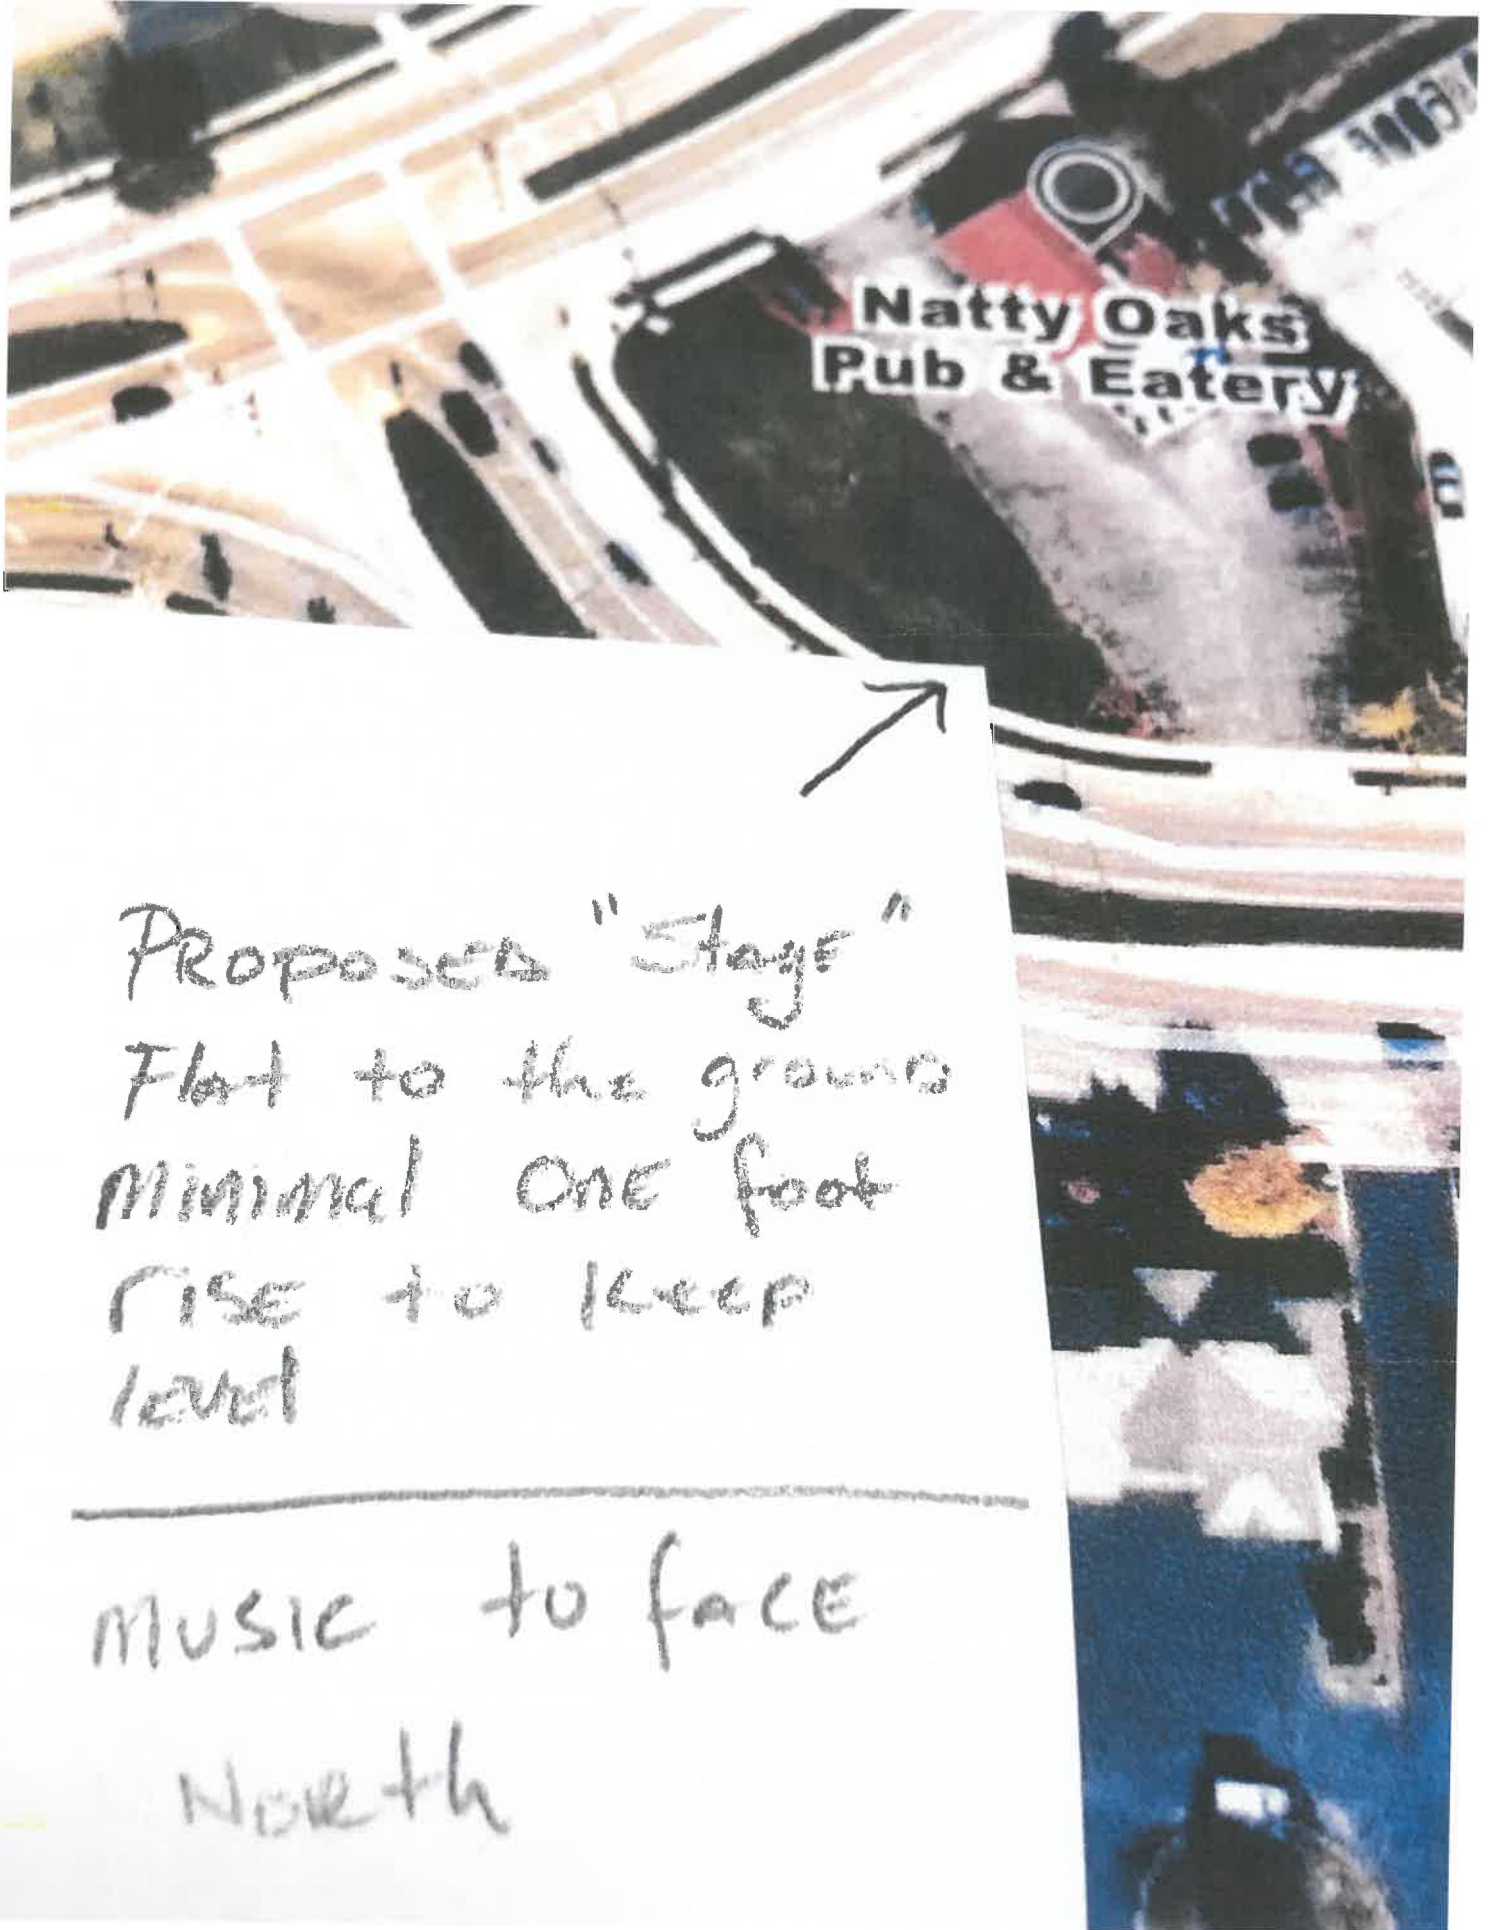 Natty Oaks
Pub & Eatery
PROPOSED "Stage"
Flat to the ground
MINIMAL ONE foot
rISE to Keep
level
MUSIC to fACE
NoRth